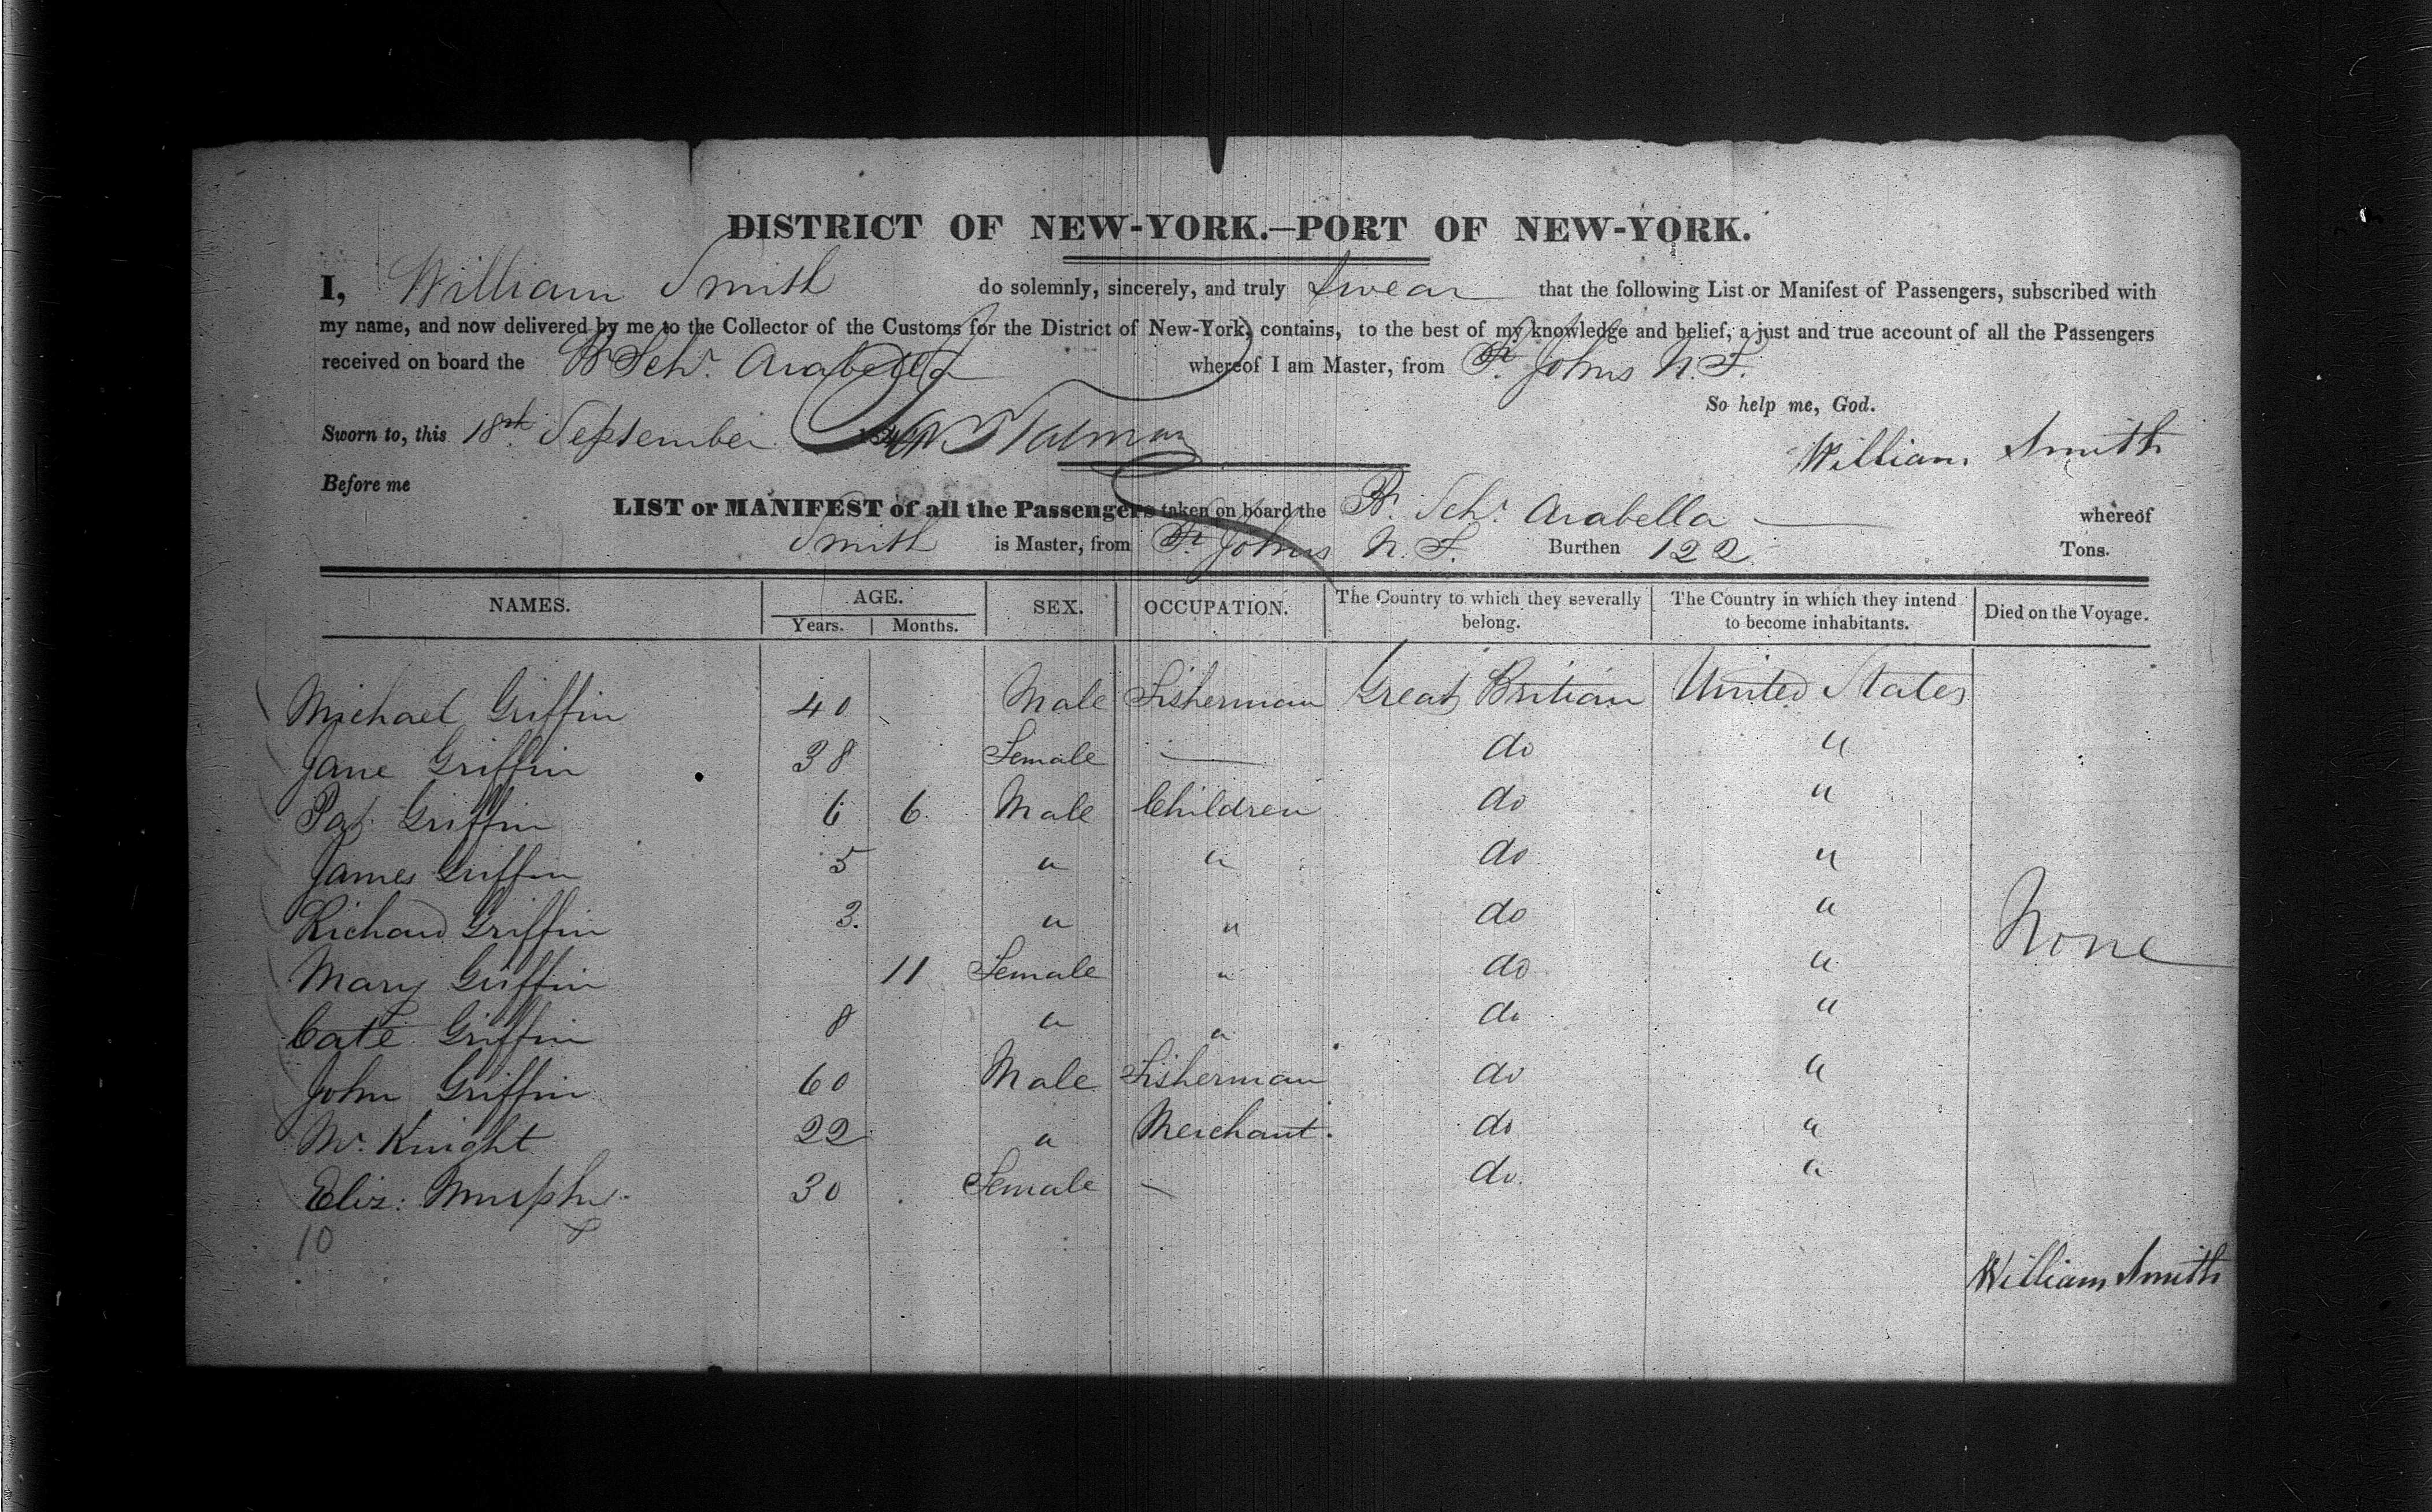 DISTRICT OF NEW-YORK.—PORT OF NEW-YORK.
I, William Smith do solemnly, sincerely, and truly Swear that the following List or Manifest of Passengers, subscribed with
my name, and now delivered by me to the Collector of the Customs for the District of New-York, contains, to the best of my knowledge and belief, a just and true account of all the Passengers
received on board the Br Schr. Arabella whereof I am Master, from St. Johns N. F.
So help me, God.
Sworn to, this 18th September
William Smith
Before me
LIST or MANIFEST of all the Passengers taken on board the Br. Schr. Arabella — whereof
Smith is Master, from St. Johns N. F. Burthen 122 Tons.
NAMES. AGE. SEX. OCCUPATION. The Country to which they severally belong. The Country in which they intend to become inhabitants. Died on the Voyage.
Years. Months.
Michael Griffin 40 Male Fisherman Great Britian United States
Jane Griffin 38 Female — do "
Pat. Griffin 6 6 Male Children do "
James Griffin 5 " " do "
Richard Griffin 3. " " do "
None
Mary Griffin 11 Female " do "
Cate Griffin 8 " " do "
John Griffin 60 Male Fisherman do "
Mr. Knight 22 " Merchant. do "
Eliz: Murphy 30 Female — do. "
10
William Smith